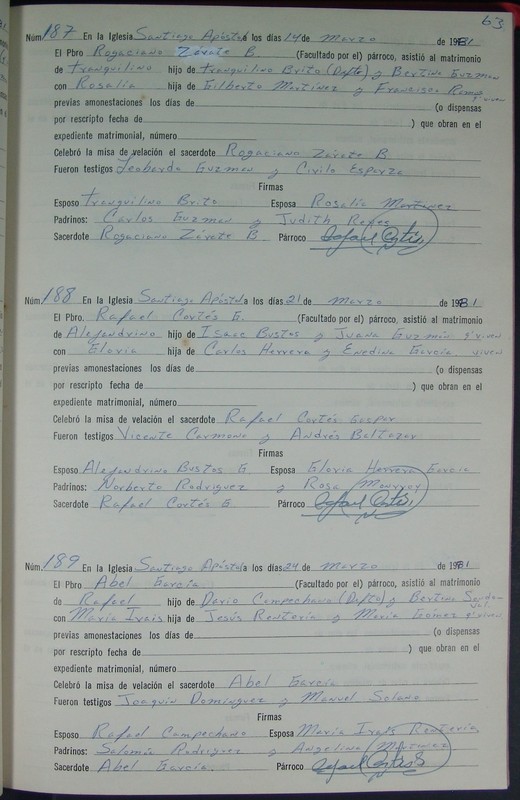 63
Núm. 187 En la Iglesia Santiago Apóstol a los días 14 de Marzo de 1981
El Pbro Rogaciano Zárate B. (Facultado por el) párroco, asistió al matrimonio
de Tranquilino hijo de Tranquilino Brito (Dfto) y Bertina Guzman
con Rosalía hija de Gilberto Martínez y Francisca q' viven
previas amonestaciones los días de (o dispensas
por rescripto fecha de ) que obran en el
expediente matrimonial, número
Celebró la misa de velación el sacerdote Rogaciano Zárate B
Fueron testigos Leoberda Guzman y Civilo Esparza
Firmas
Esposo Tranquilino Brito Esposa Rosalía Martinez
Padrinos: Carlos Guzman y Judith Reyes
Sacerdote Rogaciano Zárate B Párroco Rafael Cortés
Núm. 188 En la Iglesia Santiago Apóstol a los días 21 de Marzo de 1981
El Pbro. Rafael Cortés G. (Facultado por el) párroco, asistió al matrimonio
de Alejandrino hijo de Isaac Bustos y Juana Guzmán q' viven
con Gloria hija de Carlos Herrera y Enedina García viven
previas amonestaciones los días de (o dispensas
por rescripto fecha de ) que obran en el
expediente matrimonial, número
Celebró la misa de velación el sacerdote Rafael Cortés Gaspar
Fueron testigos Vicente Carmona y Andrés Baltazar
Firmas
Esposo Alejandrino Bustos G Esposa Gloria Herrera García
Padrinos: Norberto Rodriguez y Rosa Monrroy
Sacerdote Rafael Cortés G Párroco Rafael Cortés
Núm. 189 En la Iglesia Santiago Apóstol a los días 24 de Marzo de 1981
El Pbro Abel García (Facultado por el) párroco, asistió al matrimonio
de Rafael hijo de Dario Campechano (Dfto) y Bertina Sandoval
con María Irais hija de Jesús Rentería y María Gómez q' viven
previas amonestaciones los días de (o dispensas
por rescripto fecha de ) que obran en el
expediente matrimonial, número
Celebró la misa de velación el sacerdote Abel García
Fueron testigos Joaquin Domínguez y Manuel Solano
Firmas
Esposo Rafael Campechano Esposa María Irais Rentería
Padrinos: Salomón Rodriguez y Angelina Martinez
Sacerdote Abel García. Párroco Rafael Cortés G